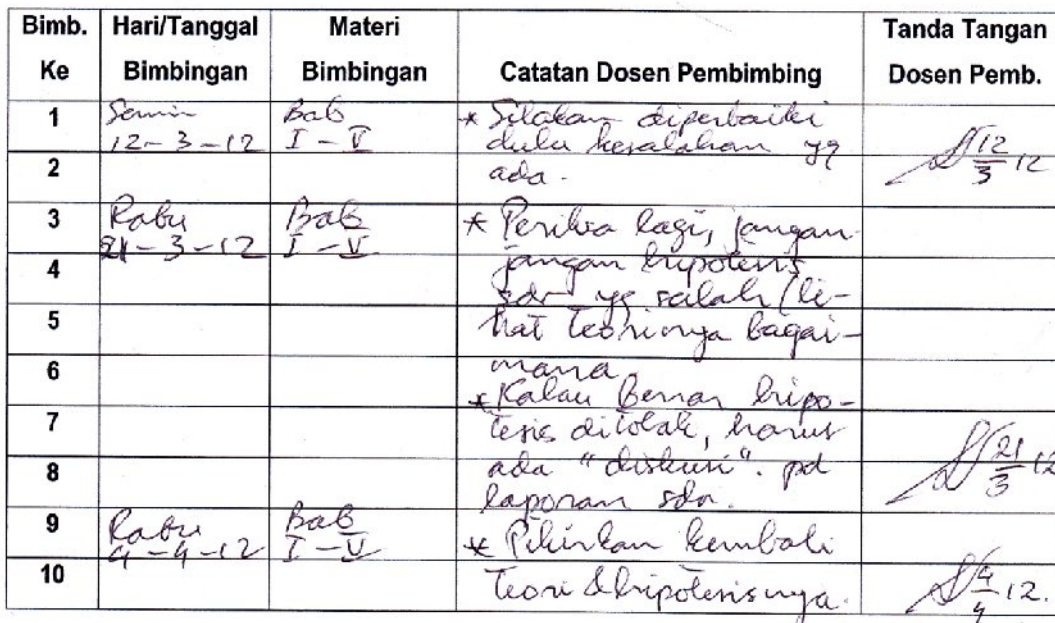 Bimb. Ke | Hari/Tanggal Bimbingan | Materi Bimbingan | Catatan Dosen Pembimbing | Tanda Tangan Dosen Pemb.
1 | Senin | Bab | * Silakan diperbaiki
12-3-12 | I - V | dulu kesalahan yg | 12/3 12
2 | ada.
3 | Rabu | Bab | * Periksa lagi, jangan-
21-3-12 | I - V | jangan hipotesis
4 | sdr yg salah (li-
5 | hat teorinya bagai-
6 | mana
* Kalau Benar hipo-
7 | tesis ditolak, harus
8 | ada "diskusi". pd | 21/3 12
laporan sdr.
9 | Rabu | Bab
4-4-12 | I - V | * Pikirkan kembali
10 | Teori & hipotesisnya. | 4/4 12.